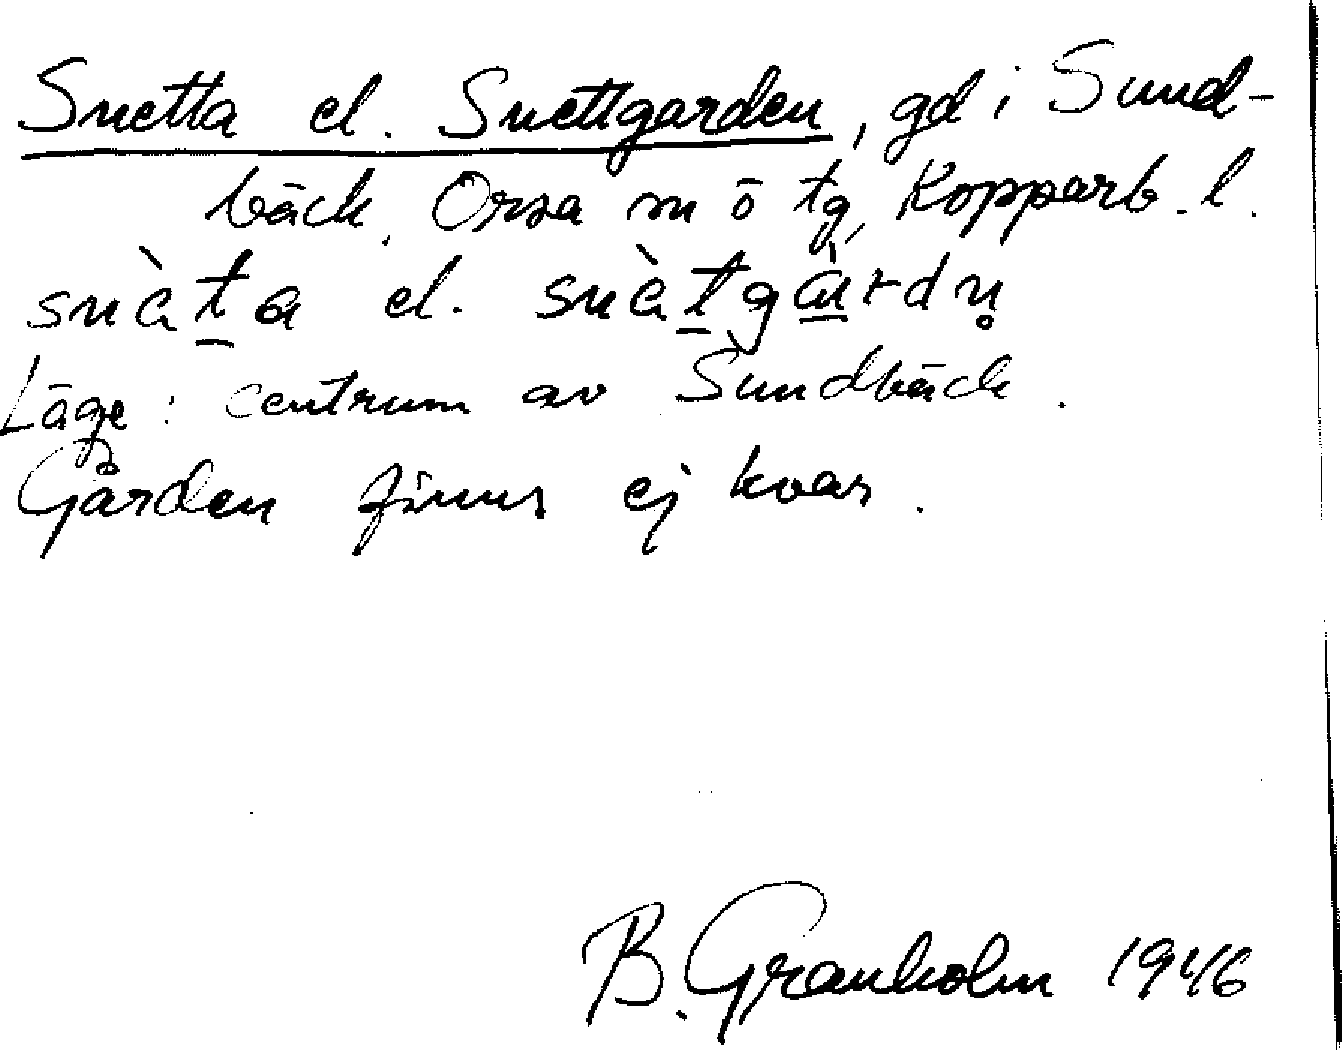 Snetta el. Snettgarden, gd i Sund-
bäck, Orsa sn ö tg, Kopparb. l.
snèt̲a el. snèt̲gà̲rdn̥
Läge: centrum av Sundbäck.
Gården finns ej kvar.
B. Granholm 1946